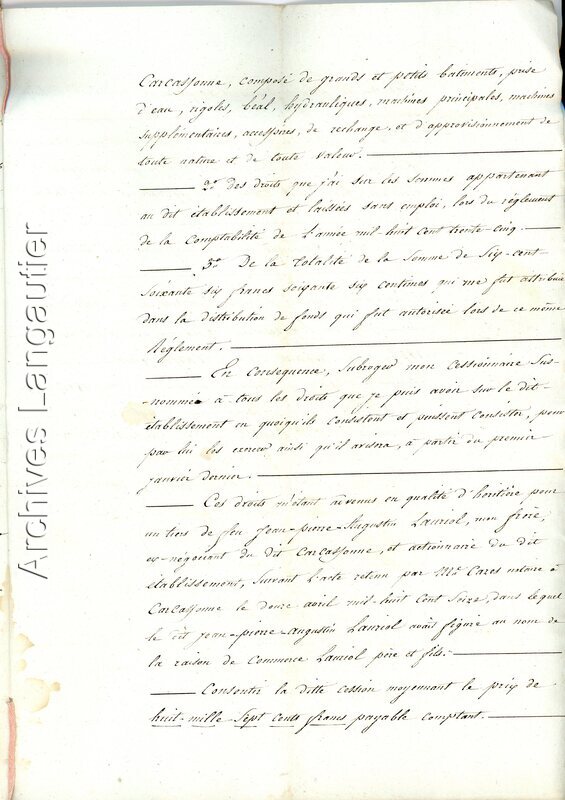 Carcassonne, composé de grands et petits batiments, prise
d'eau, rigoles, béal, hydrauliques, machines principales, machines
supplémentaires, accessoires, de rechange, et d'approvisionnement de
toute nature et de toute valeur.
2° des droits que j'ai sur les sommes appartenant
au dit établissement et laissées sans emploi, lors du réglement
de la Comptabilité de l'année mil-huit cent trente-cinq.
3° De la totalité de la Somme de Six-cent
Soixante six francs soixante six centimes qui me fut attribuée
dans la distribution de fonds qui fut autorisée lors de ce même
Réglement.
En Consequence, Subroger mon Cessionnaire Sus-
nommé à tous les droits que je puis avoir sur le dit-
établissement en quoiqu'ils Consistent et puissent Consister, pour
par lui les exercer ainsi qu'il avisera, à partir du premier
janvier dernier.
Ces droits m'étant advenus en qualité d'héritière pour
un tiers de feu Jean-pierre-Augustin Lauriol, mon frère,
ex-négociant du dit Carcassonne, et actionnaire du dit
établissement, Suivant l'acte retenu par Me Cares notaire à
Carcassonne le douze avril mil-huit Cent Seize, dans lequel
le dit jean-pierre-augustin Lauriol avait figuré au nom de
la raison de Commerce Lauriol père et fils.
Consentir la ditte cession moyennant le prix de
huit-mille Sept cents francs payable comptant.
Archives Langautier